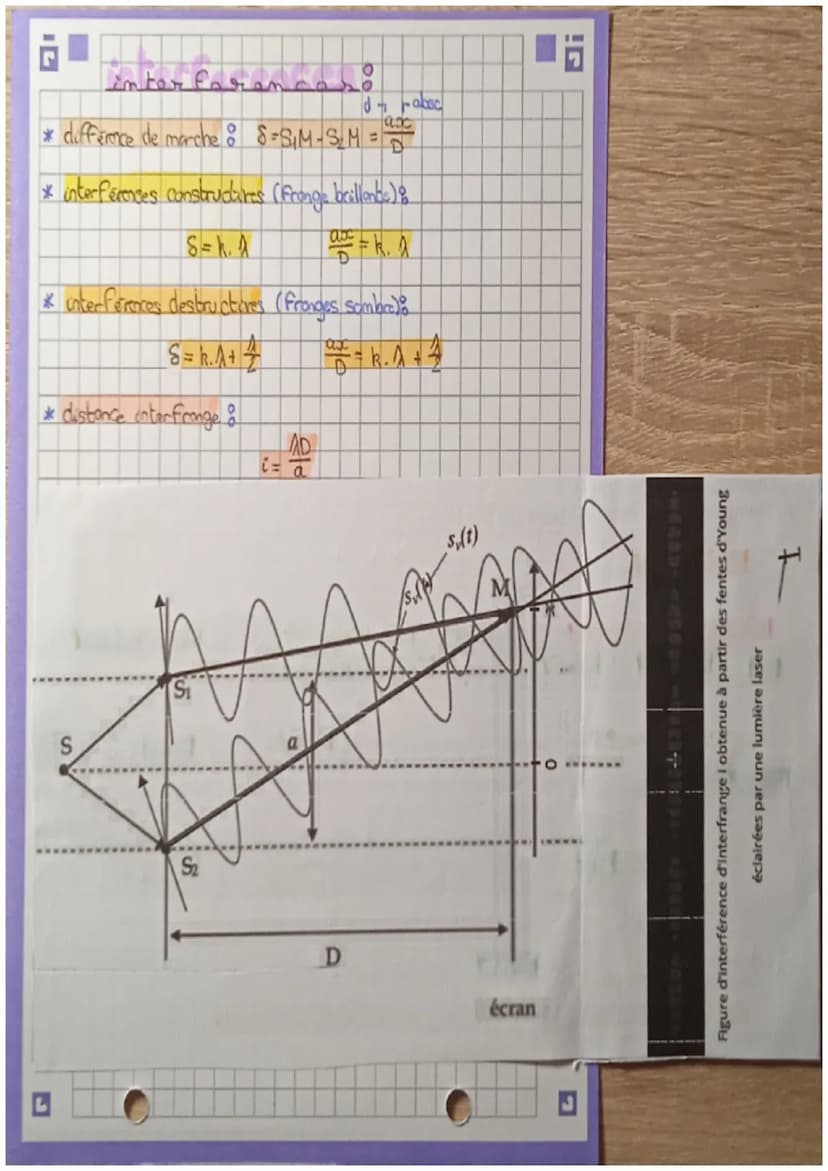 interférences :
* différence de marche : δ = S₁M - S₂M = ax/D
* interférences constructives (frange brillante) :
δ = k.λ ax/D = k.λ
* interférences destructives (franges sombre) :
δ = k.λ + λ/2 ax/D = k.λ + λ/2
* distance interfrange :
i = λD/a
S
S₁
S₂
a
M
x
O
D
écran
Figure d'interférence d'interfrange I obtenue à partir des fentes d'Young
éclairées par une lumière laser